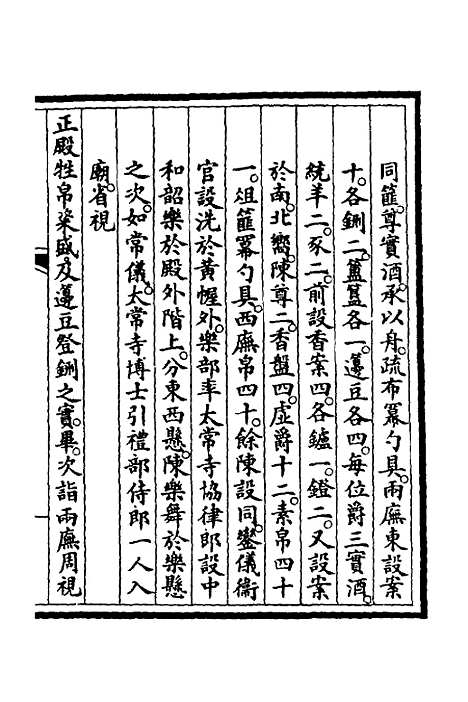 同篚尊實酒承以舟疏布冪勺具兩廡東設案
十各鉶二簠簋各一籩豆各四每位爵三實酒
統羊二豕二前設香案四各鑪一鐙二又設案
於南北嚮陳尊二香盤四虛爵十二素帛四十
一俎篚冪勺具西廡帛四十餘陳設同鑾儀衞
官設洗於黃幄外樂部率太常寺協律郎設中
和韶樂於殿外階上分東西懸陳樂舞於樂懸
之次如常儀太常寺博士引禮部侍郎一人入
廟省視
正殿牲帛粢盛及籩豆登鉶之實畢次詣兩廡周視